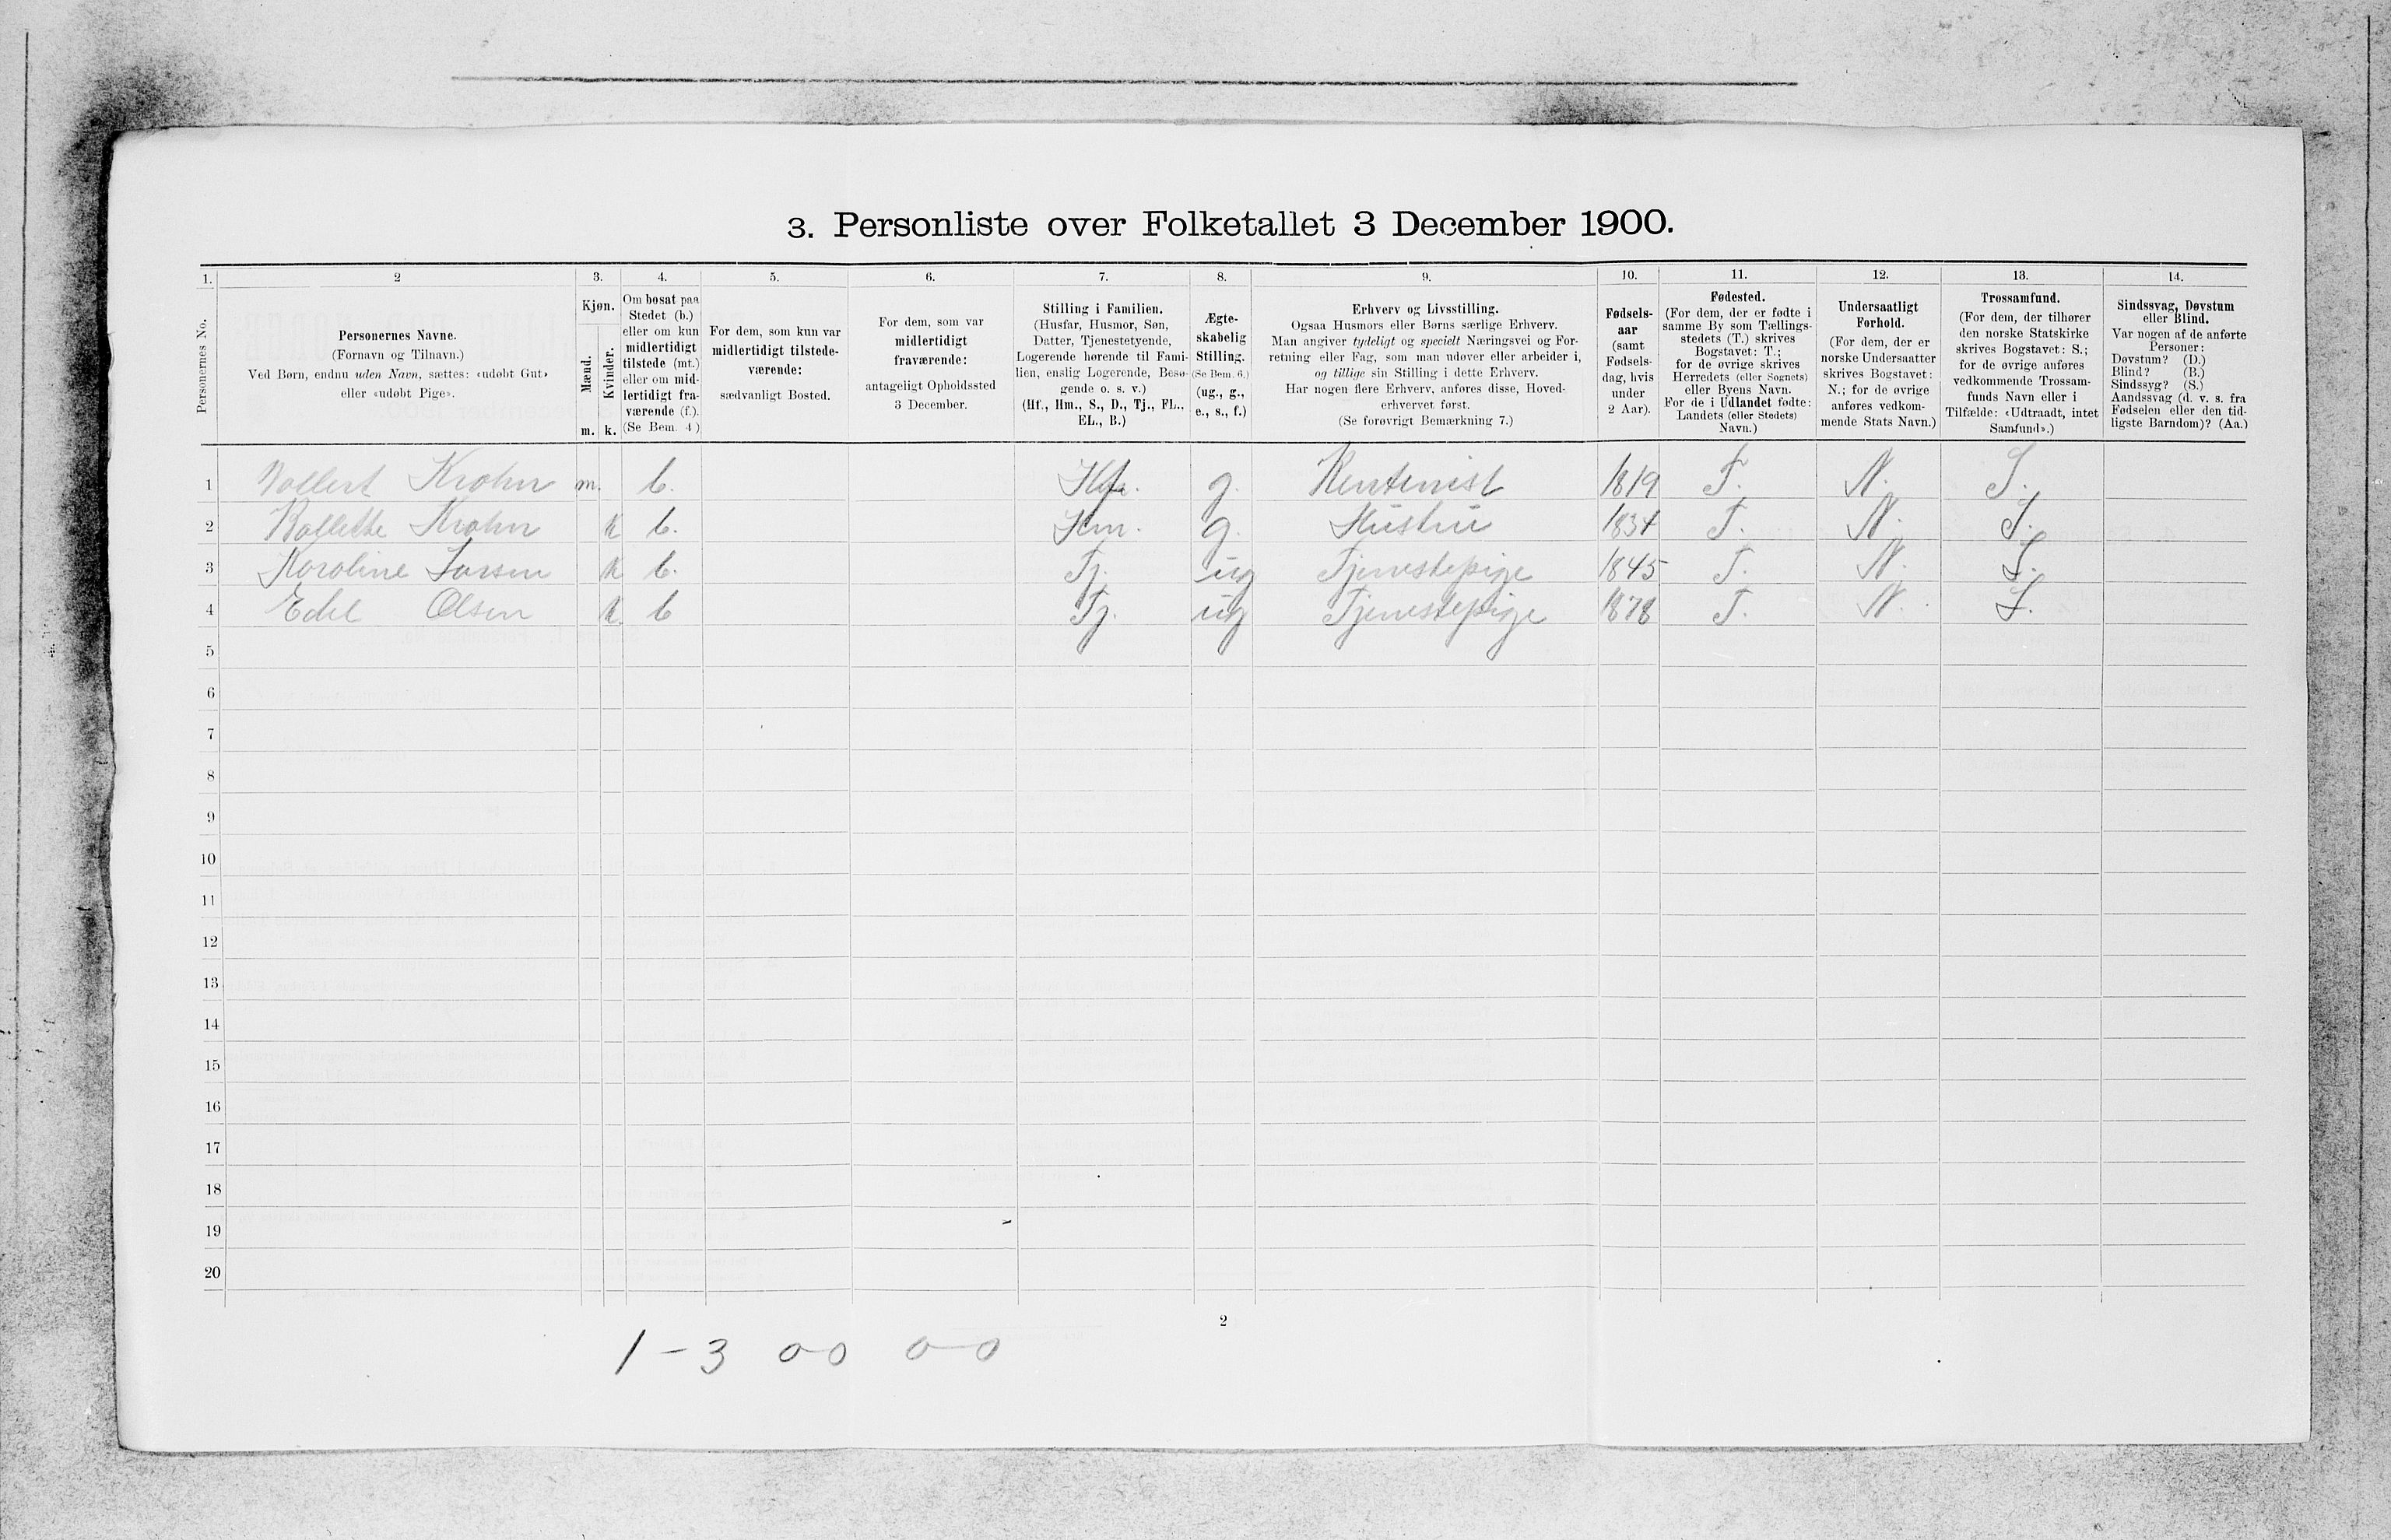 3. Personliste over Folketallet 3 December 1900.
1. 2 3. 4. 5. 6. 7. 8. 9. 10. 11. 12. 13. 14.
Personernes No.
Personernes Navne.
(Fornavn og Tilnavn.)
Ved Børn, endnu uden Navn, sættes: «udøbt Gut»
eller «udøbt Pige».
Kjøn.
Mænd.
Kvinder.
m. k.
Om bosat paa
Stedet (b.)
eller om kun
midlertidigt
tilstede (mt.)
eller om mid-
lertidigt fra-
værende (f.).
(Se Bem. 4.)
For dem, som kun var
midlertidigt tilstede-
værende:
sædvanligt Bosted.
For dem, som var
midlertidigt
fraværende:
antageligt Opholdssted
3 December.
Stilling i Familien.
(Husfar, Husmor, Søn,
Datter, Tjenestetyende,
Logerende hørende til Fami-
lien, enslig Logerende, Besø-
gende o. s. v.)
(Hf., Hm., S., D., Tj., FL.,
EL., B.)
Ægte-
skabelig
Stilling.
(Se Bem. 6.)
(ug., g.,
e., s., f.)
Erhverv og Livsstilling.
Ogsaa Husmors eller Børns særlige Erhverv.
Man angiver tydeligt og specielt Næringsvei og For-
retning eller Fag, som man udøver eller arbeider i,
og tillige sin Stilling i dette Erhverv.
Har nogen flere Erhverv, anføres disse, Hoved-
erhvervet først.
(Se forøvrigt Bemærkning 7.)
Fødsels-
aar
(samt
Fødsels-
dag, hvis
under
2 Aar).
Fødested.
(For dem, der er fødte i
samme By som Tællings-
stedets (T.) skrives
Bogstavet: T.;
for de øvrige skrives
Herredets (eller Sognets)
eller Byens Navn.
For de i Udlandet fødte:
Landets (eller Stedets)
Navn.)
Undersaatligt
Forhold.
(For dem, der er
norske Undersaatter
skrives Bogstavet:
N.; for de øvrige
anføres vedkom-
mende Stats Navn.)
Trossamfund.
(For dem, der tilhører
den norske Statskirke
skrives Bogstavet: S.;
for de øvrige anføres
vedkommende Trossam-
funds Navn eller i
Tilfælde: «Udtraadt, intet
Samfund».)
Sindssvag, Døvstum
eller Blind.
Var nogen af de anførte
Personer:
Døvstum? (D.)
Blind? (B.)
Sindssyg? (S.)
Aandssvag (d. v. s. fra
Fødselen eller den tid-
ligste Barndom)? (Aa.)
1 Vollert Krohn m. b. Hf. g. Rentenist 1819 T. N. S.
2 Kollette Krohn k b. Hm. g. Hustru 1834 T. N. S.
3 Karoline Larsen k b. Tj. ug Tjenestepige 1845 T. N. S.
4 Edel Olsen k b Tj. ug Tjenestepige 1878 T. N. S.
5
6
7
8
9
10
11
12
13
14
15
16
17
18
19
20
2
1 - 3 0-0 0-0